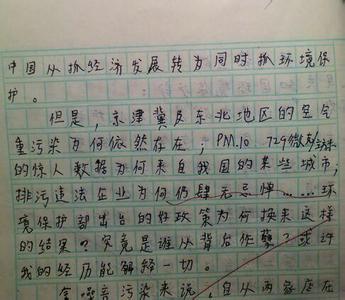 中国从抓经济发展转为同时抓环境保
护。
但是，京津冀及东北地区的空气
重污染为何依然存在；PM.10 729微克/立方米
的惊人数据为何来自我国的某些城市；
排污违法企业为何仍肆无忌惮……环
境保护部出台的好政策为何换来这样
的结果？究竟是谁从背后作孽？或许
我的经历能解释一切。
拿噪音污染来说，自从两家庭在